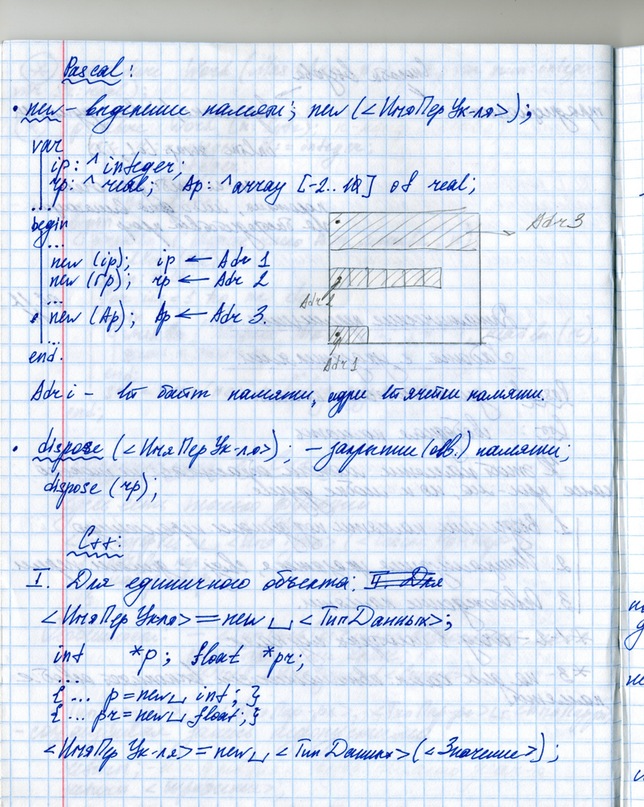 Pascal:
• new – выделение памяти; new (<ИмяПерУк-ля>);
var
ip: ^integer;
rp: ^real; Ap: ^array [-2..10] of real;
...
begin
...
new (ip); ip ← Adr 1
new (rp); rp ← Adr 2
...
• new (Ap); Ap ← Adr 3.
...
end.
Adr 3
Adr 2
Adr 1
Adr i – байт памяти, ячейки памяти.
• dispose (<ИмяПерУк-ля>); – закрытие (осв.) памяти;
dispose (rp);
C++:
I. Для единичного объекта: II. Для
<ИмяПерУкля> = new ␣ <ТипДанных>;
int *p; float *pr;
...
{ ... p = new ␣ int; }
{ ... pr = new ␣ float; }
<ИмяПерУк-ля> = new ␣ <ТипДанных> (<Значение>);